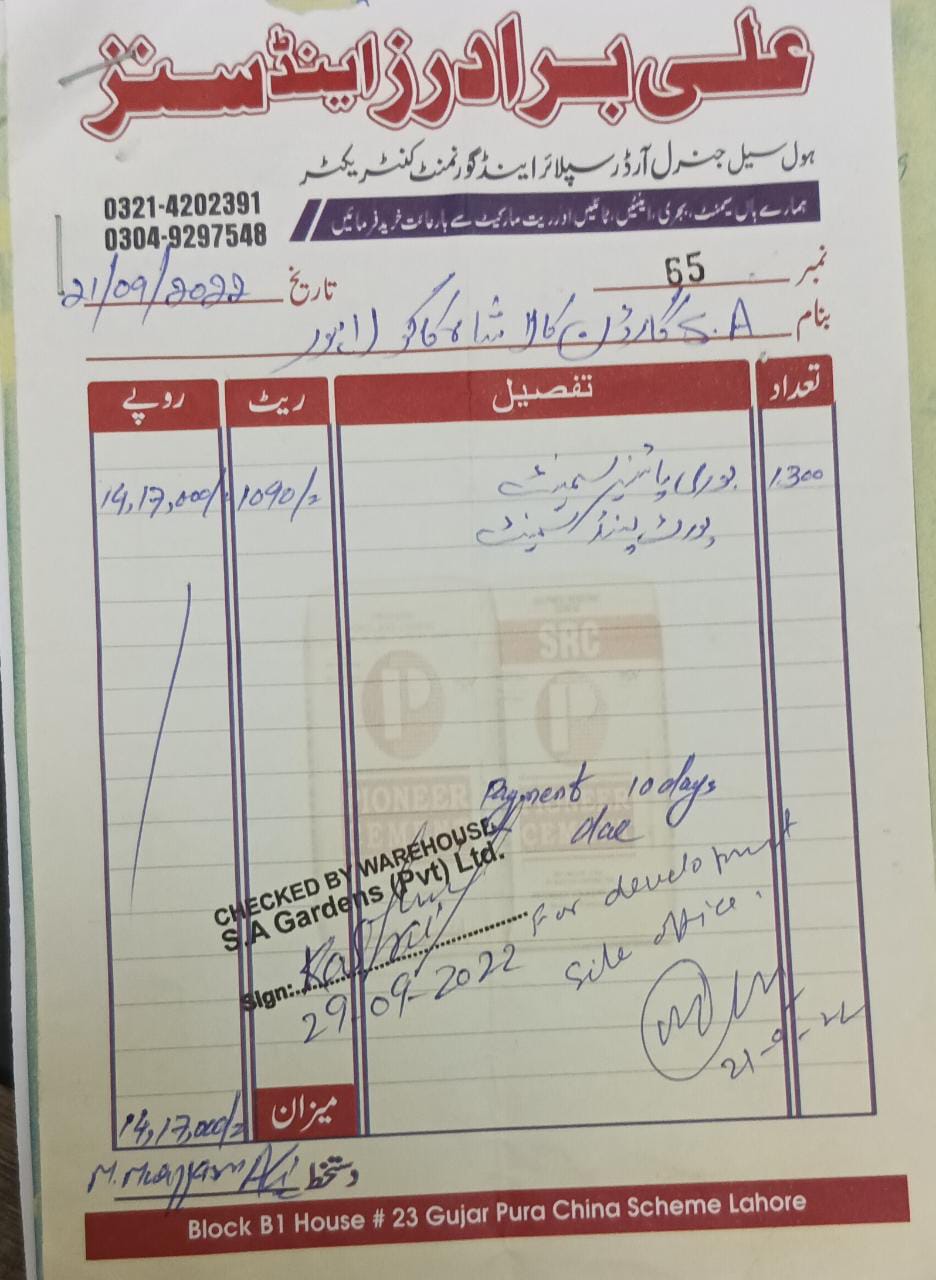 علی برادرز اینڈ سنز
ہول سیل جنرل آرڈر سپلائر اینڈ گورنمنٹ کنٹریکٹر
0321-4202391
0304-9297548
ہمارے ہاں سیمنٹ، بجری، اینٹیں، ٹائلیں اور ریت مارکیٹ سے بارعائت خرید فرمائیں
نمبر 65
تاریخ 21/09/2022
بنام S.A گارڈن کالا شاہ کاکو لاہور
تعداد تفصیل ریٹ روپے
1300 بوری پائنیر سیمنٹ 1090/= 14,17,000/=
پورٹ لینڈ سیمنٹ
SRC
PIONEER
CEMENT
PIONEER
CEMENT
Payment 10 days
due
CHECKED BY WAREHOUSE
S.A Gardens (Pvt) Ltd.
Sign:
29-09-2022
For development
Site office.
21-9-22
میزان 14,17,000/=
دستخط M. Ali
Block B1 House # 23 Gujar Pura China Scheme Lahore